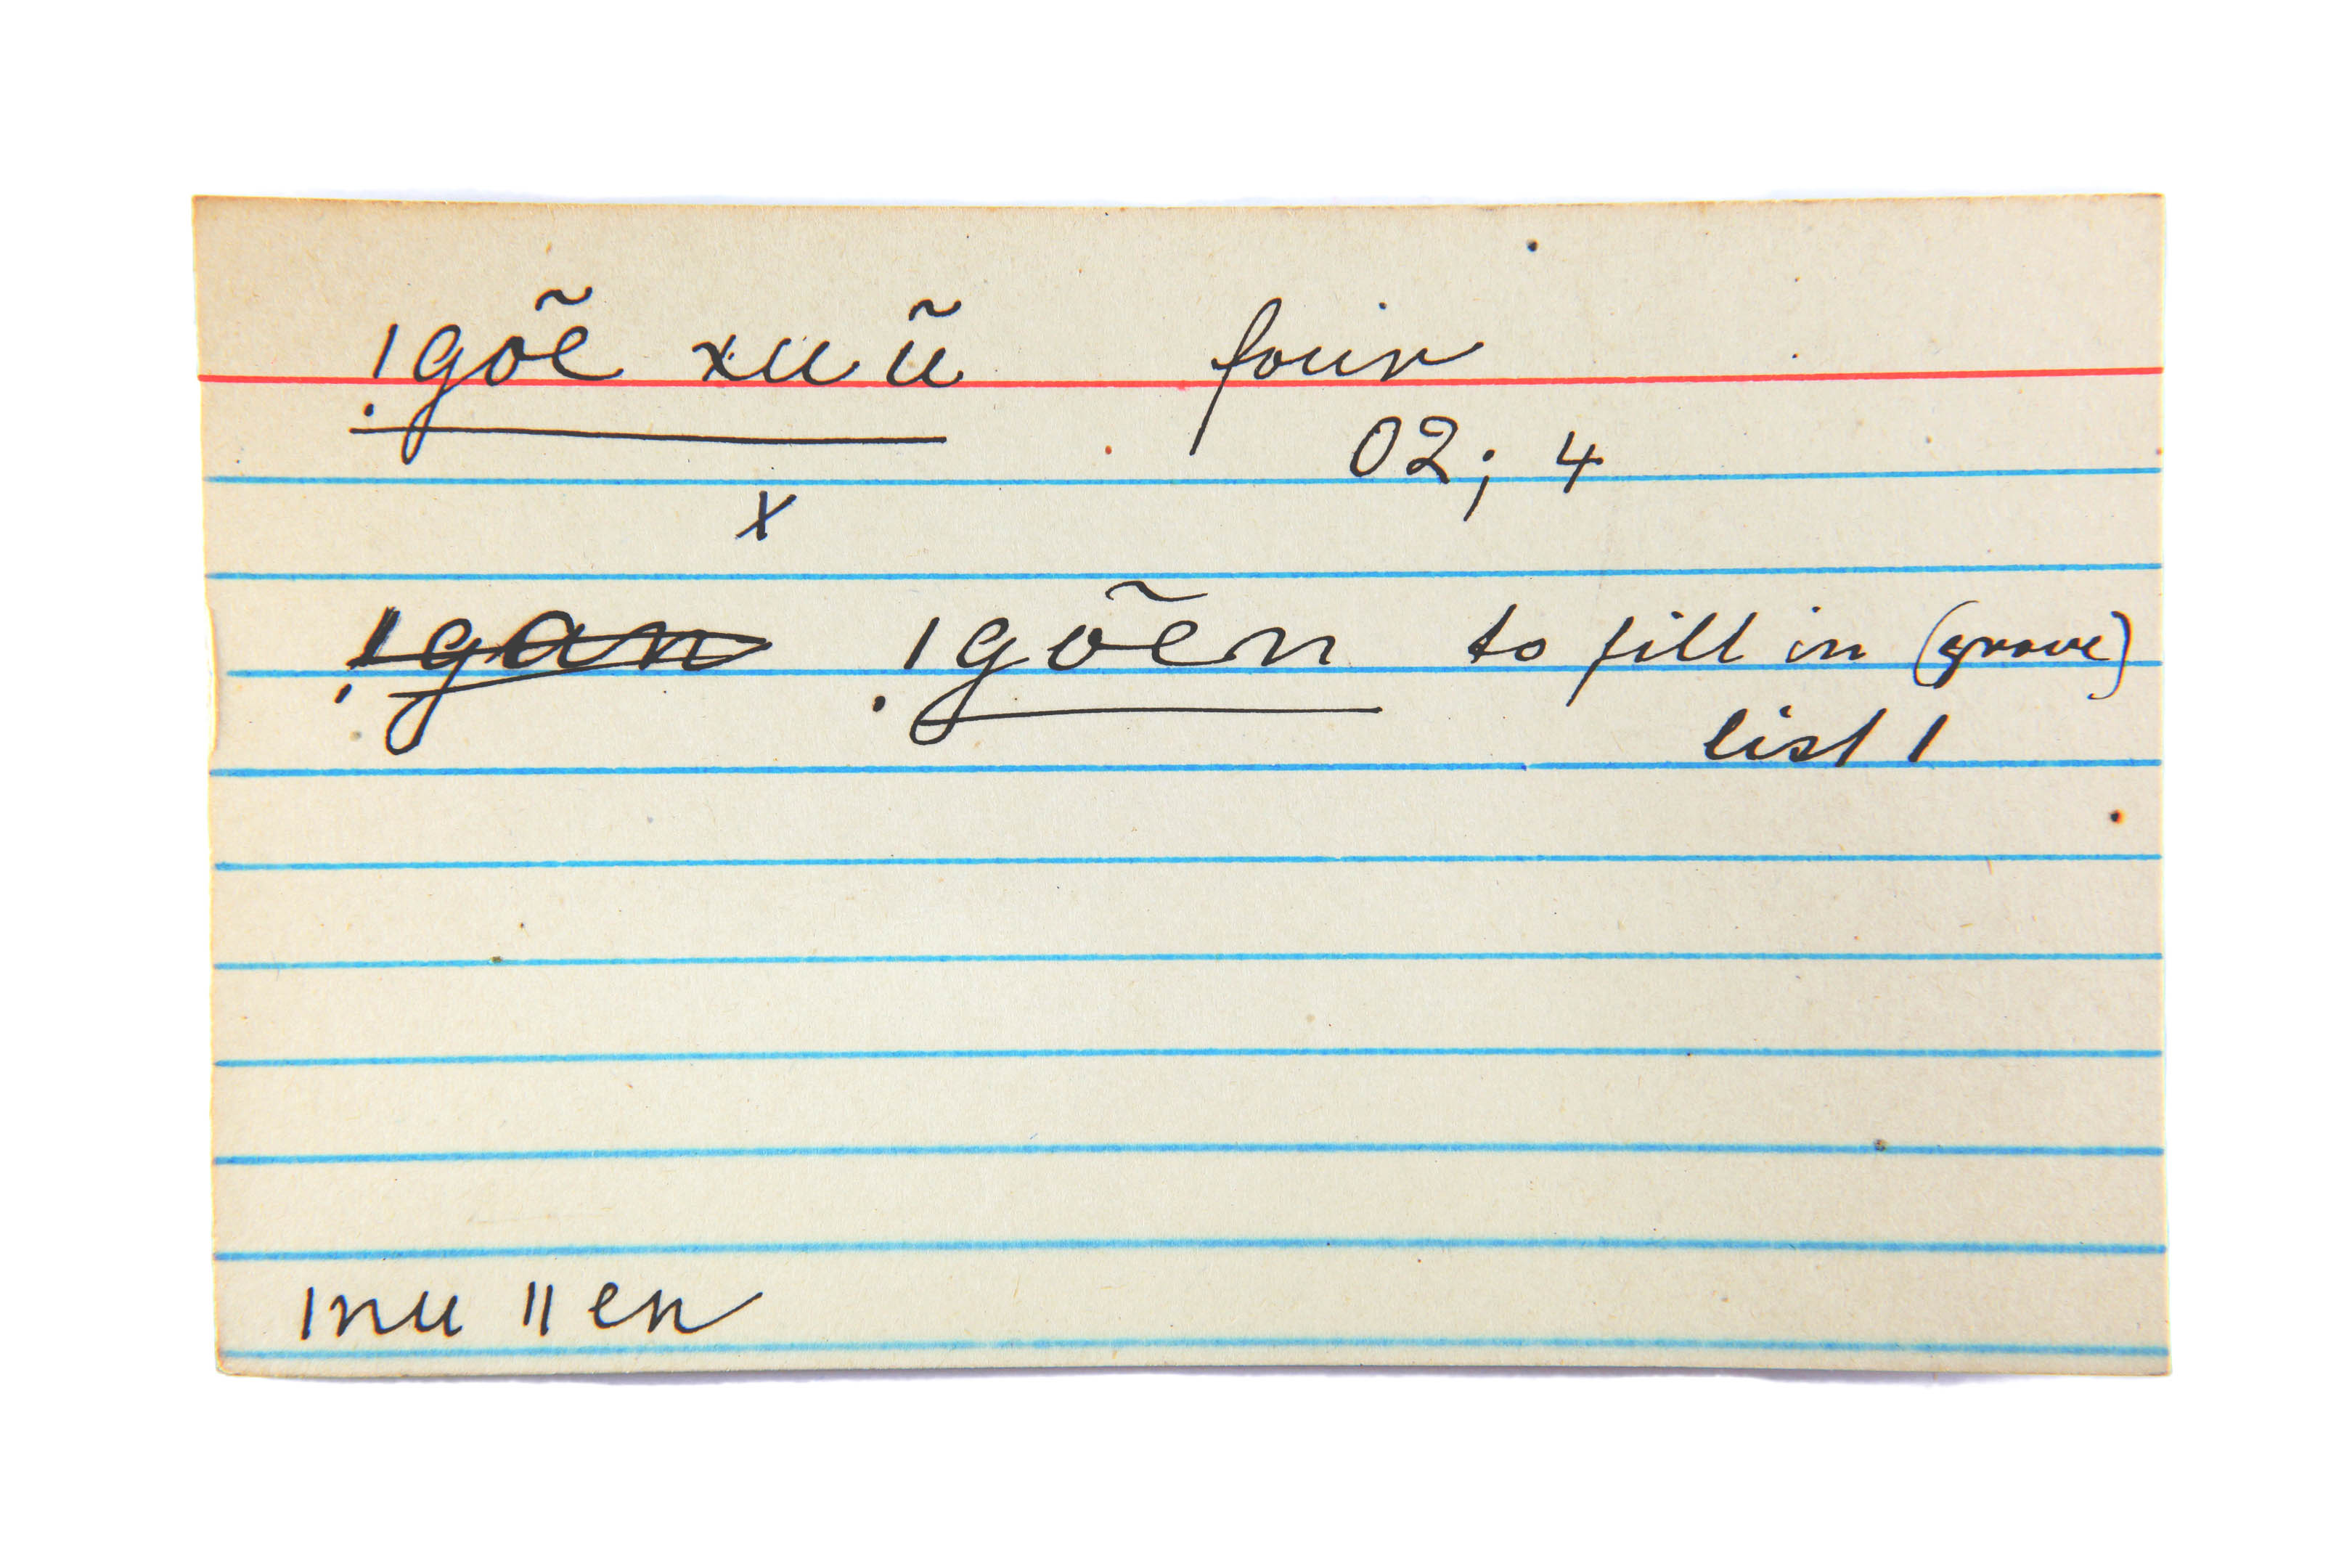 !gõe xuũ four
02; 4
x
!gan !gõen to fill in (grave)
list 1
ǀnu ǁen